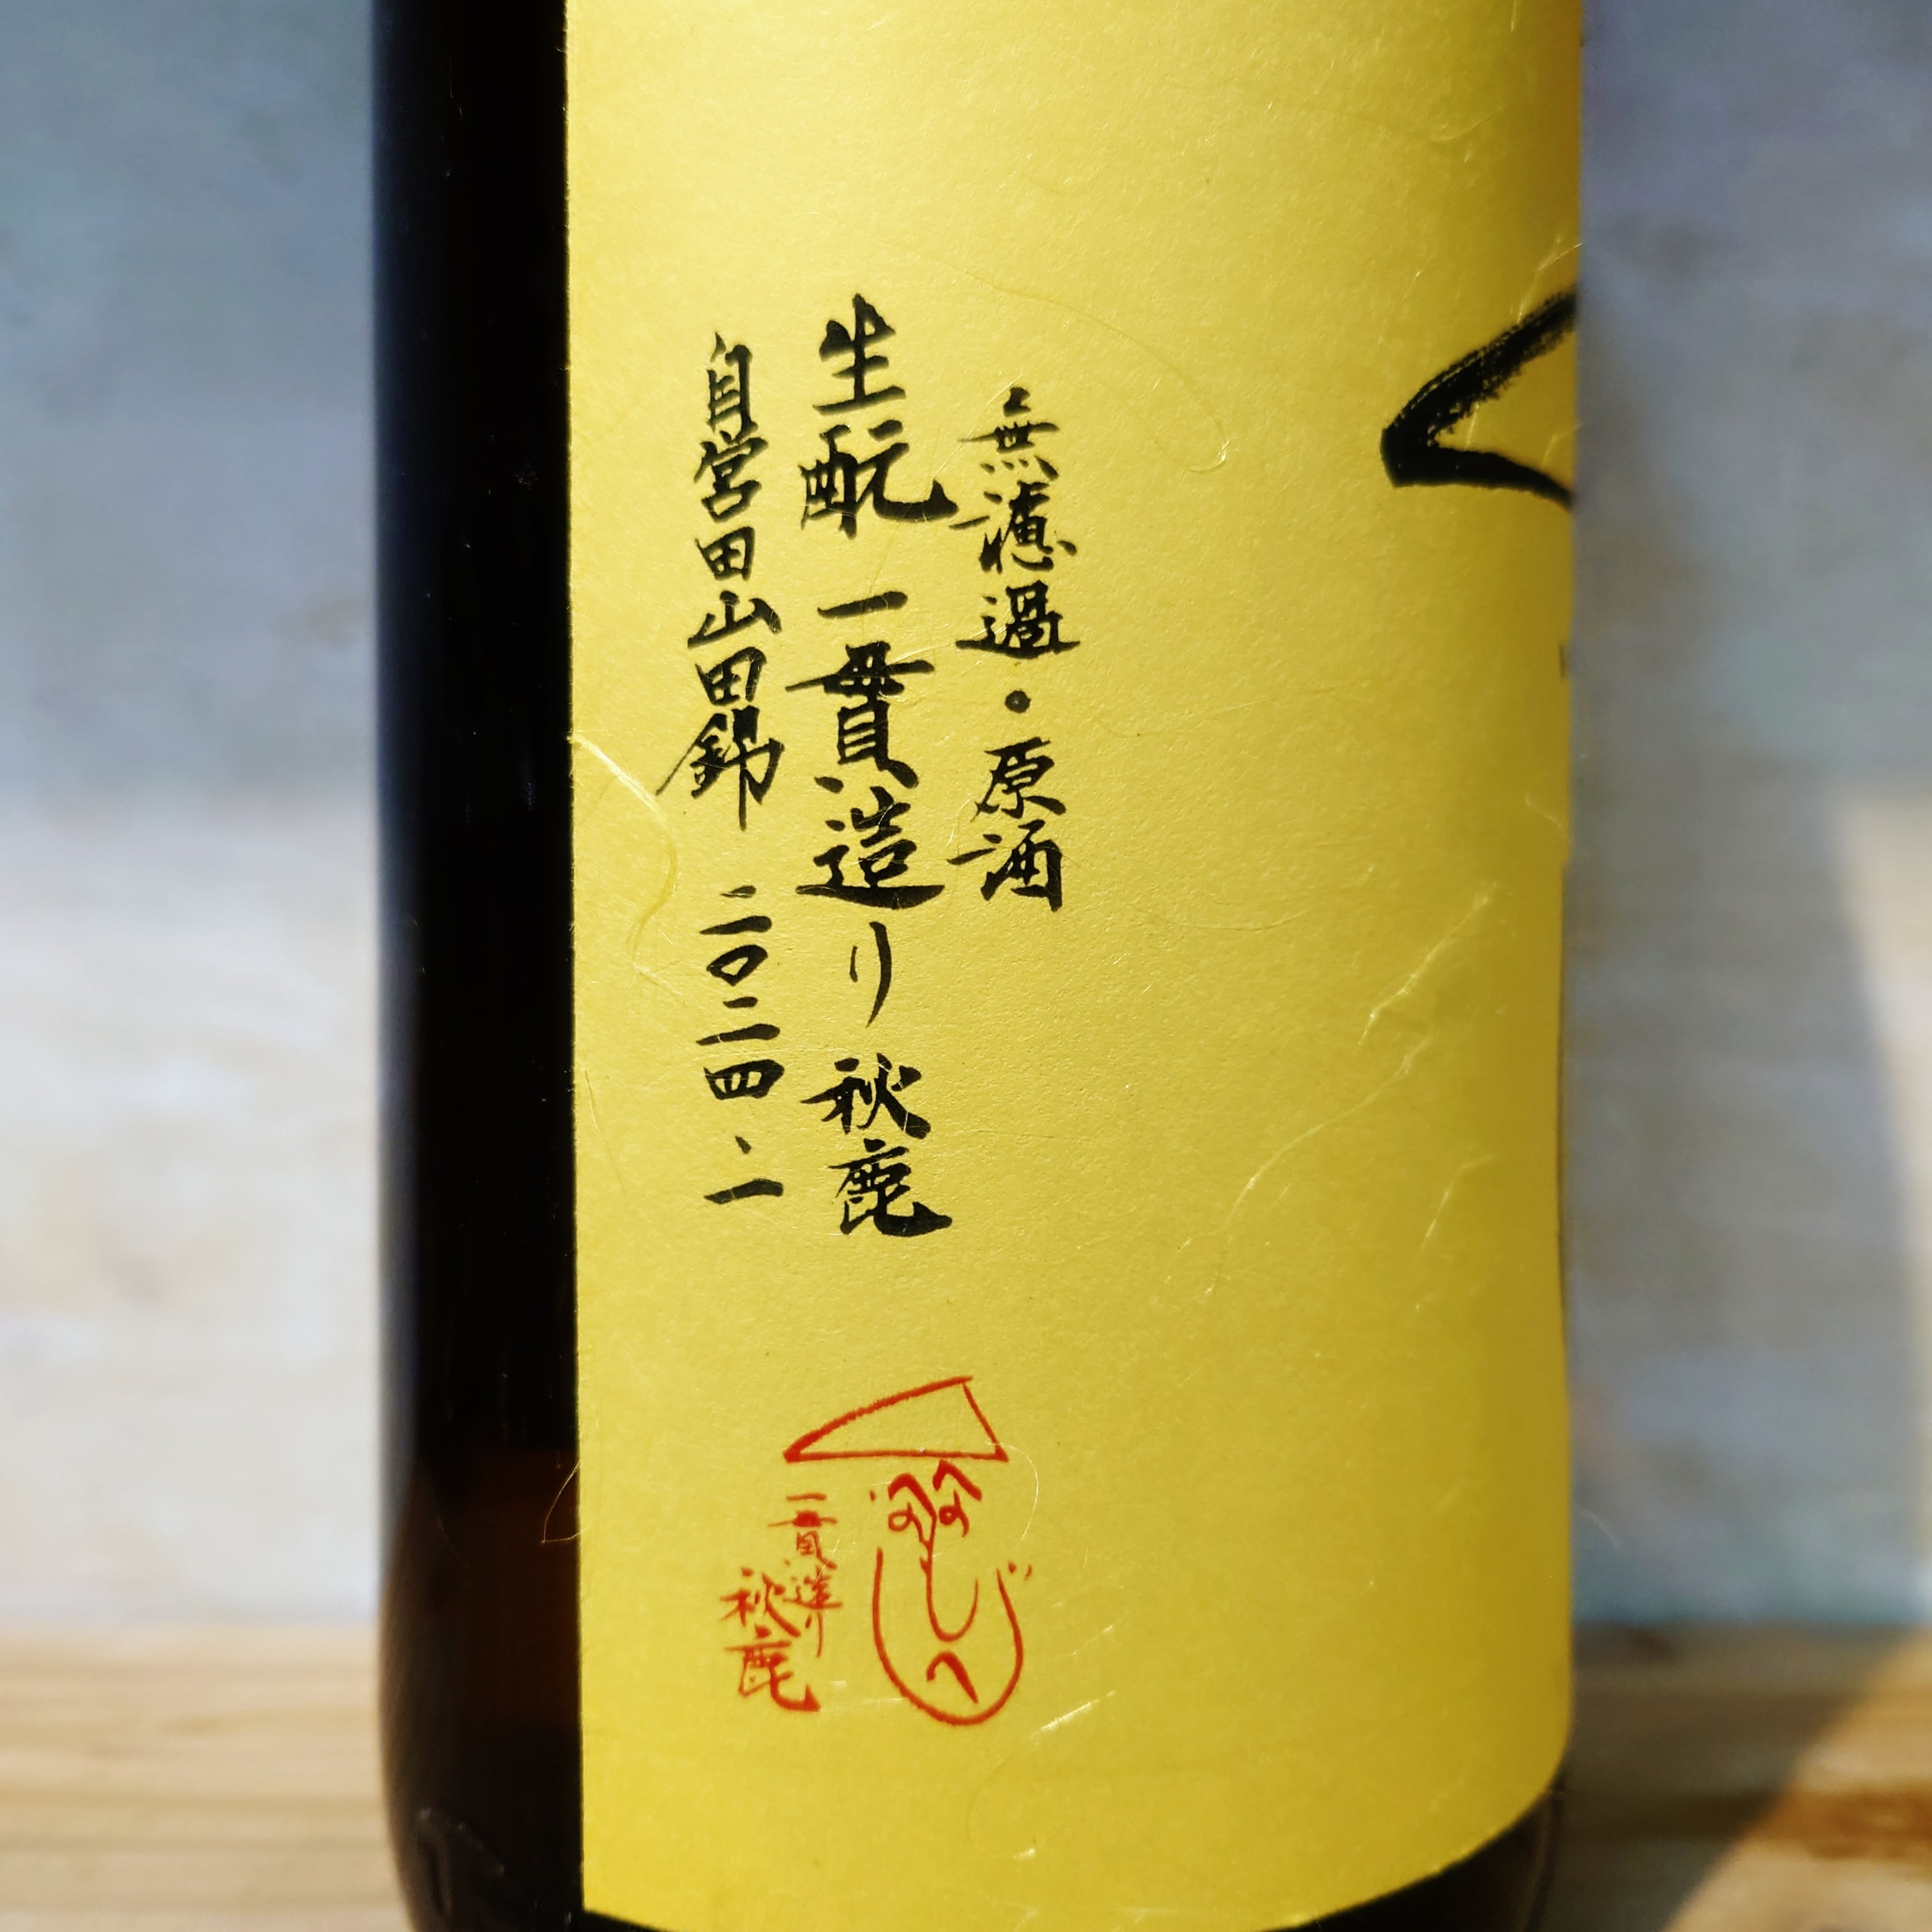 無濾過・原酒
生酛 一貫造り 秋鹿
自営田山田錦 二〇二四、一
一貫造り
秋鹿